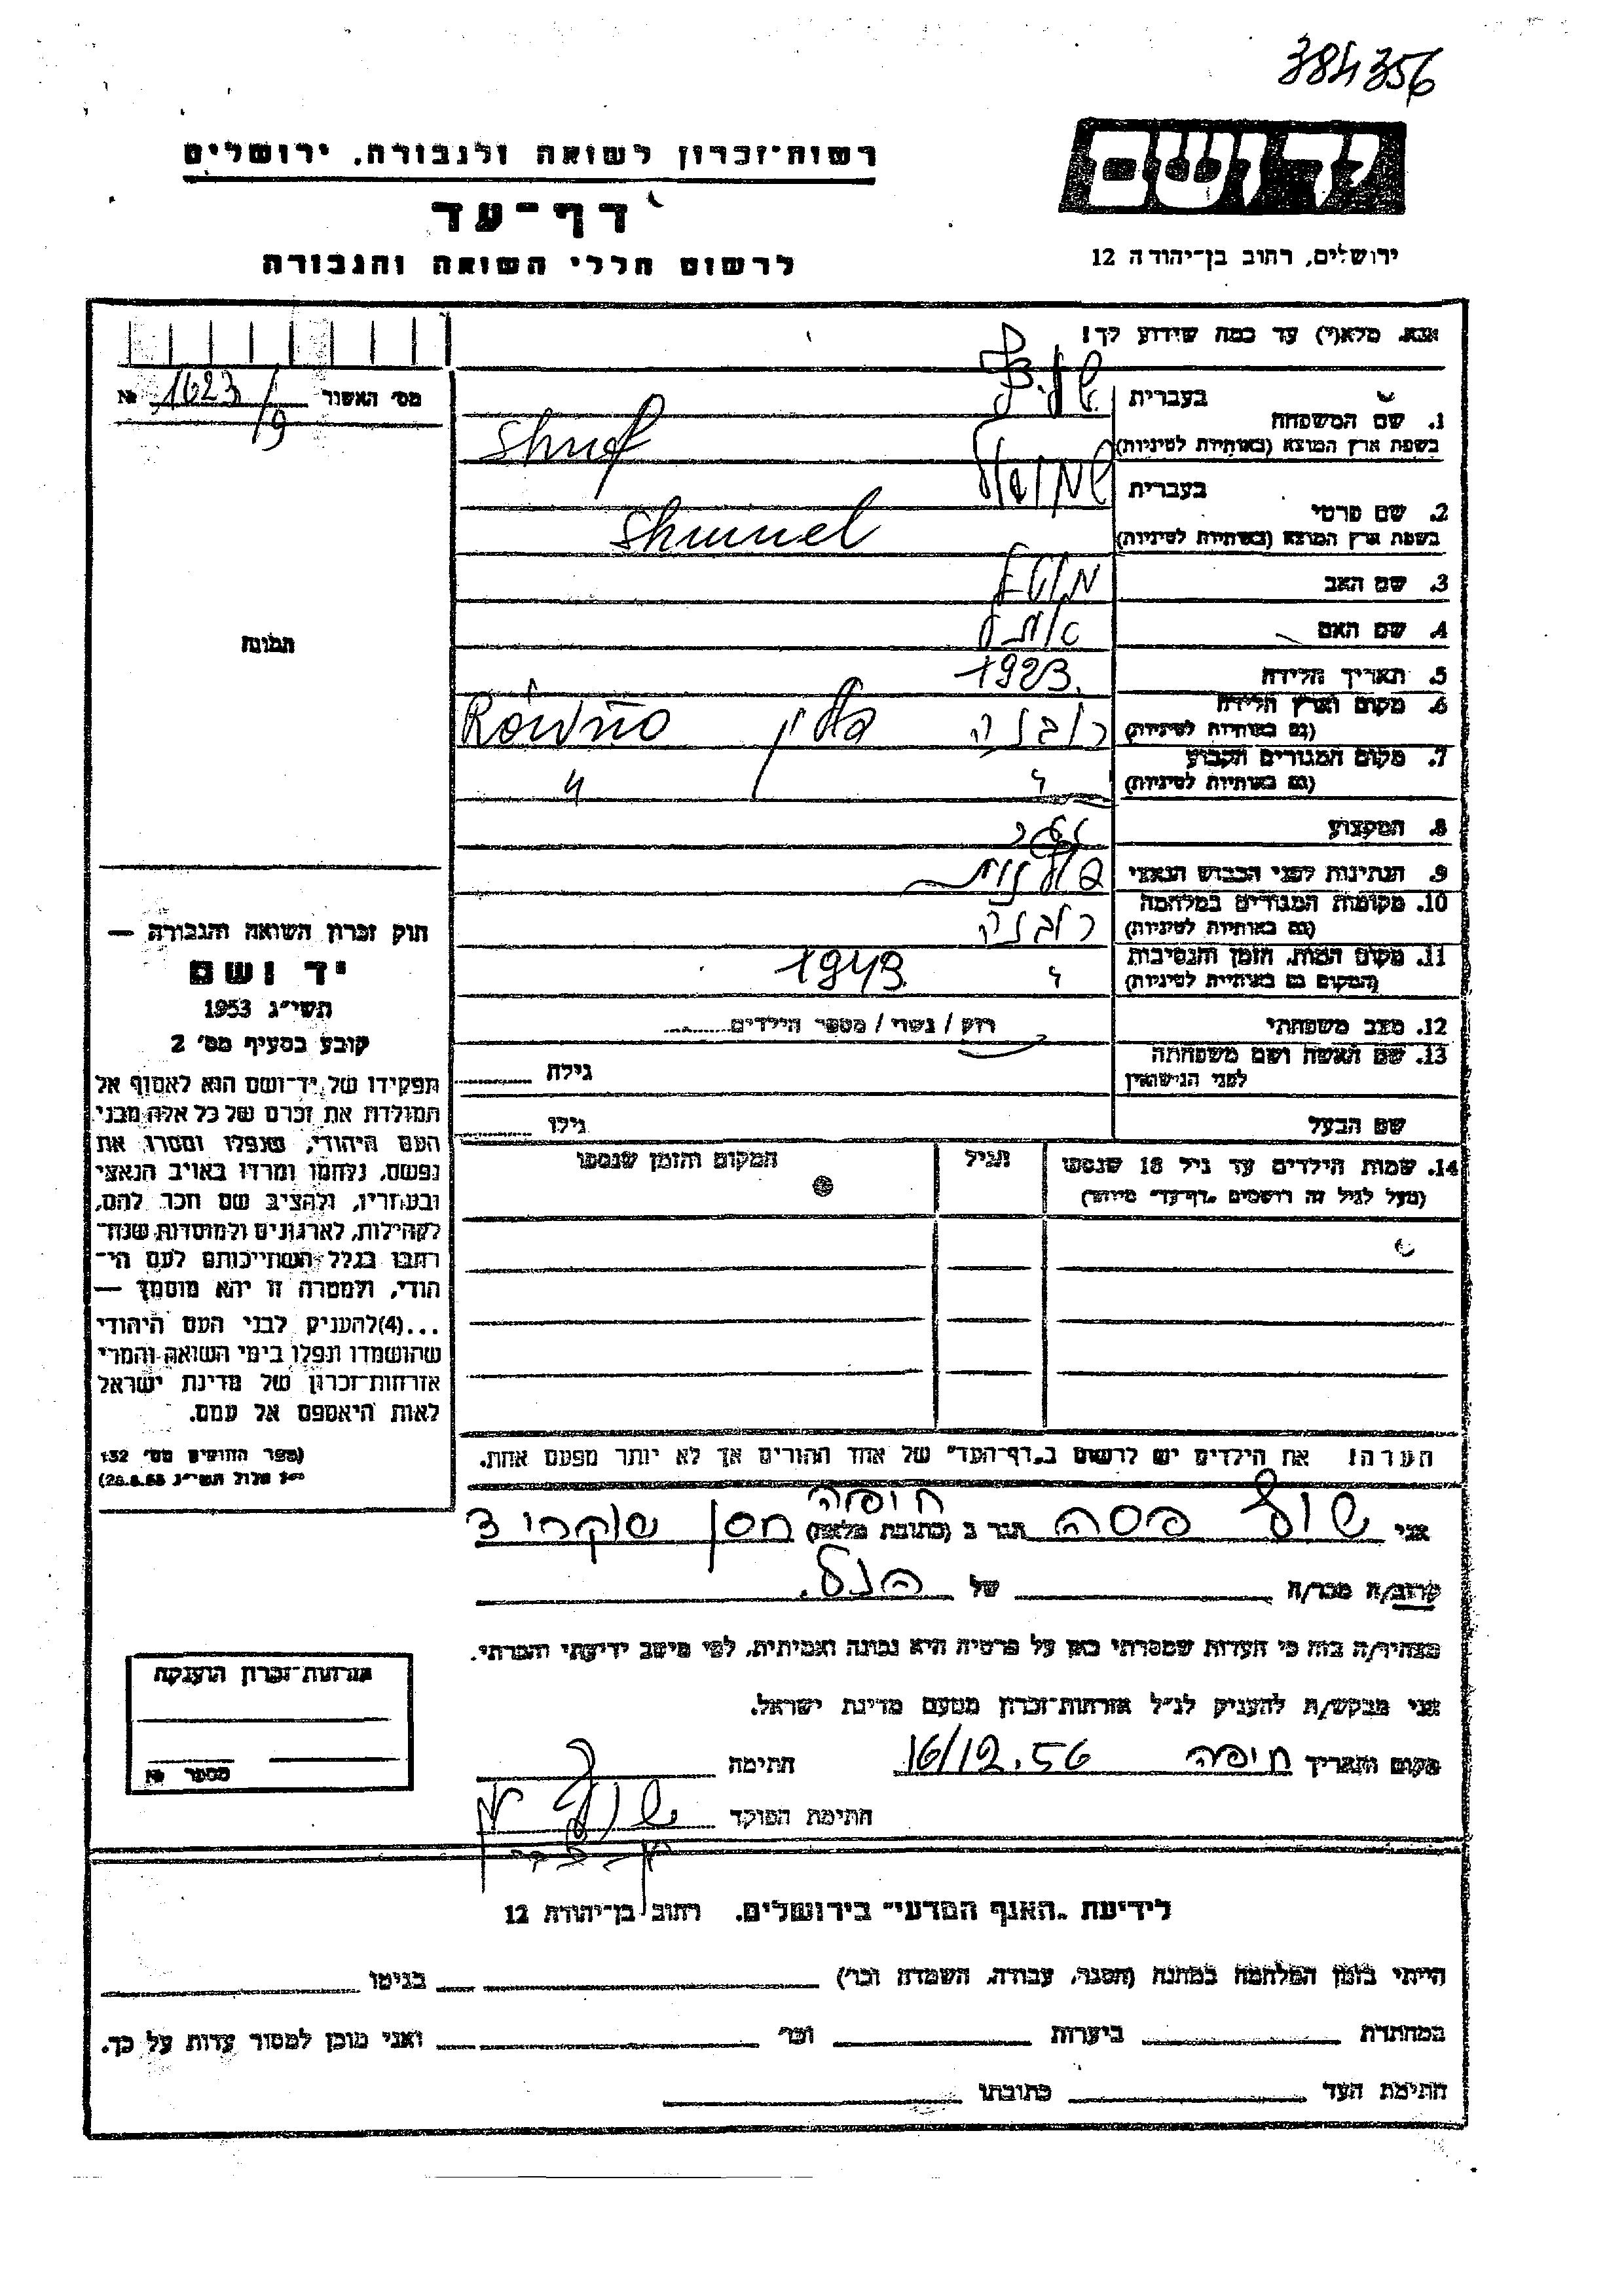 384356
יד ושם
רשות־זכרון לשואה ולגבורה, ירושלים
דף־עד
לרשום חללי השואה והגבורה
ירושלים, רחוב בן־יהודה 12
אנא, מלא(י) עד כמה שידוע לך!
מס׳ האשור 1623/9 №
1. שם המשפחה בעברית
בשפת ארץ המוצא (באותיות לטיניות) Shuf
2. שם פרטי בעברית שמואל
בשפת ארץ המוצא (באותיות לטיניות) Shmuel
3. שם האב
4. שם האם
תמונה
5. תאריך הלידה 1923.
6. מקום וארץ הלידה
(גם באותיות לטיניות) רובנה פולין Równo
7. מקום המגורים הקבוע
(גם באותיות לטיניות) " "
8. המקצוע
9. הנתינות לפני הכבוש הנאצי פולנית
10. מקומות המגורים במלחמה
(גם באותיות לטיניות) רובנה
11. מקום המות, הזמן והנסיבות
(המקום גם באותיות לטיניות) " 1943.
12. מצב משפחתי רוק / נשוי / מספר הילדים
13. שם האשה ושם משפחתה
לפני הנישואין גילה
שם הבעל גילו
14. שמות הילדים עד גיל 18 שנספו הגיל המקום והזמן שנספו
(מעל לגיל זה רושמים „דף־עד״ מיוחד)
חוק זכרון השואה והגבורה —
יד ושם
תשי״ג 1953
קובע בסעיף מס׳ 2
תפקידו של יד־ושם הוא לאסוף אל
המולדת את זכרם של כל אלה מבני
העם היהודי, שנפלו ומסרו את
נפשם, נלחמו ומרדו באויב הנאצי
ובעוזריו, ולהציב שם וזכר להם,
לקהילות, לארגונים ולמוסדות שנח־
רבו בגלל השתייכותם לעם הי־
הודי, ולמטרה זו יהא מוסמך —
...(4)להעניק לבני העם היהודי
שהושמדו ונפלו בימי השואה והמרי
אזרחות־זכרון של מדינת ישראל
לאות היאספם אל עמם.
(ספר החוקים מס׳ 132
אלול תשי״ג 28.8.53)
הערה! את הילדים יש לרשום ב„דף־העד״ של אחד ההורים אך לא יותר מפעם אחת.
חיפה
אני שוף פסה הגר ב (כתובת מלאה) חסן שוקרי 3
קרוב/ה מכר/ה של הנ״ל.
מצהיר/ה בזה כי העדות שמסרתי כאן על פרטיה היא נכונה ואמיתית, לפי מיטב ידיעתי והכרתי.
אני מבקש/ת להעניק לנ״ל אזרחות־זכרון מטעם מדינת ישראל.
מקום ותאריך חיפה 16/12.56 חתימה
חתימת הפוקד
אזרחות־זכרון הוענקה
מספר №
לידיעת „האגף המדעי״ בירושלים. רחוב בן־יהודה 12
הייתי בזמן המלחמה במחנה (הסגר, עבודה, השמדה וכו׳) בגיטו
במחתרת ביערות וכו׳ ואני מוכן למסור עדות על כך.
חתימת העד כתובתו